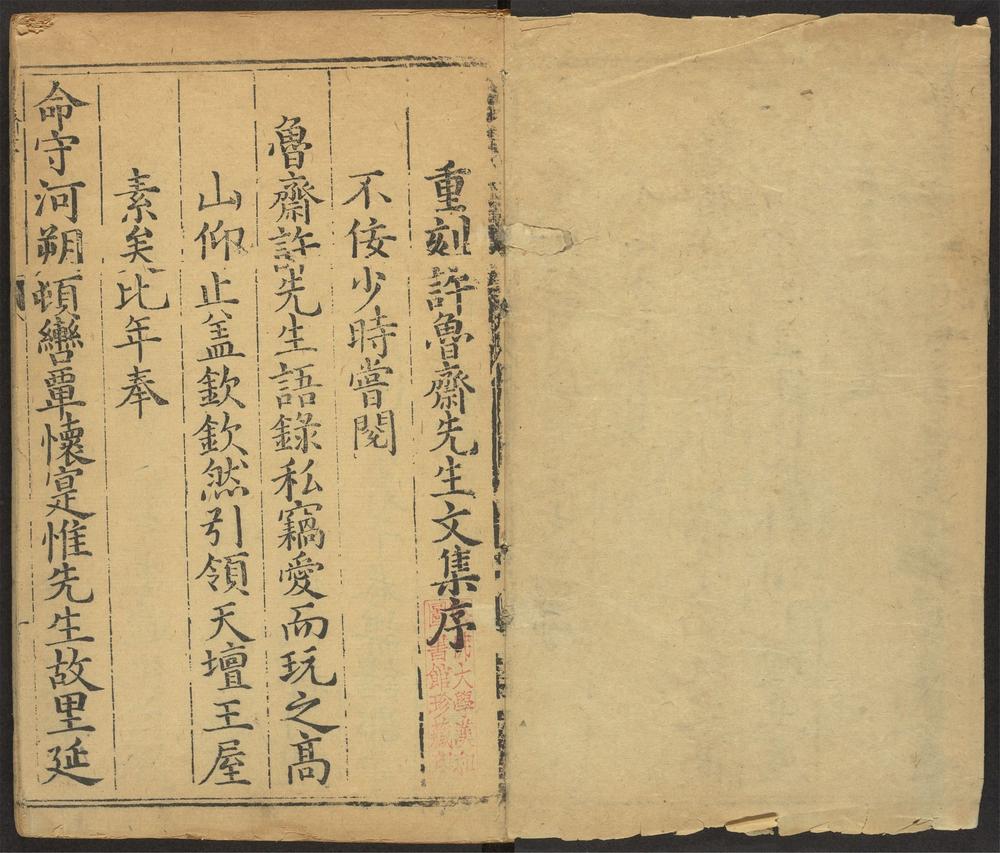 重刻許魯齋先生文集序
不佞少時嘗閱
魯齋許先生語錄私竊愛而玩之高
山仰止盖欽欽然引領天壇王屋
素矣比年奉
命守河朔頓轡覃懷寔惟先生故里延
大學漢和
圖書館珍藏印